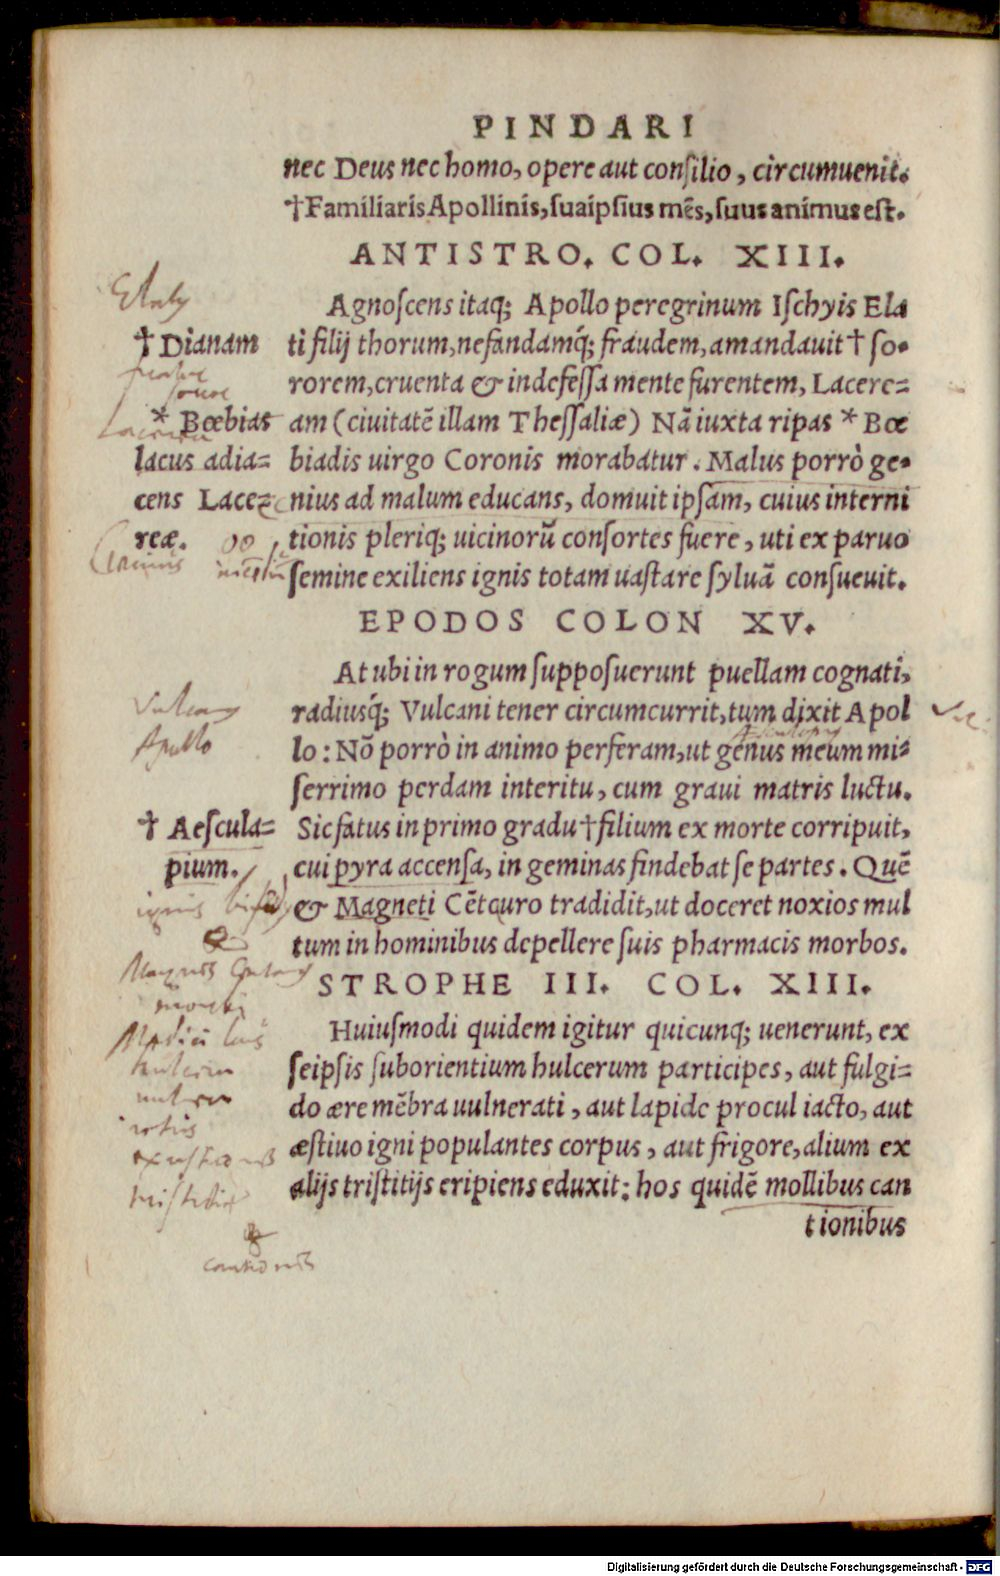 PINDARI
nec Deus nec homo, opere aut consilio, circumuenit.
†Familiaris Apollinis, sua ipsius mēs, suus animus est.
ANTISTRO. COL. XIII.
Agnoscens itaq; Apollo peregrinum Ischyis Ela
† Dianam
ti filij thorum, nefandamq́; fraudem, amandauit † so-
rorem, cruenta & indefessa mente furentem, Lacere=
* Bœbias
am (ciuitatē illam Thessaliæ) Nā iuxta ripas * Bœ
lacus adia=
biadis uirgo Coronis morabatur. Malus porrò ge-
cens Lace=
nius ad malum educans, domuit ipsam, cuius interni
reæ.
tionis pleriq; uicinorū consortes fuere, uti ex paruo
semine exiliens ignis totam uastare syluā consueuit.
EPODOS COLON XV.
At ubi in rogum supposuerunt puellam cognati,
Vulcanus
radiusq́; Vulcani tener circumcurrit, tum dixit Apol
Apollo
lo: Nō porrò in animo perferam, ut genus meum mi=
serrimo perdam interitu, cum graui matris luctu.
† Aescula=
Sic fatus in primo gradu † filium ex morte corripuit,
pium.
cui pyra accensa, in geminas findebat se partes. Quē
ignis
& Magneti Cētauro tradidit, ut doceret noxios mul
tum in hominibus depellere suis pharmacis morbos.
STROPHE III. COL. XIII.
Huiusmodi quidem igitur quicunq; uenerunt, ex
seipsis suborientium hulcerum participes, aut fulgi=
do ære mēbra uulnerati, aut lapide procul iacto, aut
æstiuo igni populantes corpus, aut frigore, alium ex
alijs tristitijs eripiens eduxit: hos quidē mollibus can
tionibus
Digitalisierung gefördert durch die Deutsche Forschungsgemeinschaft - DFG